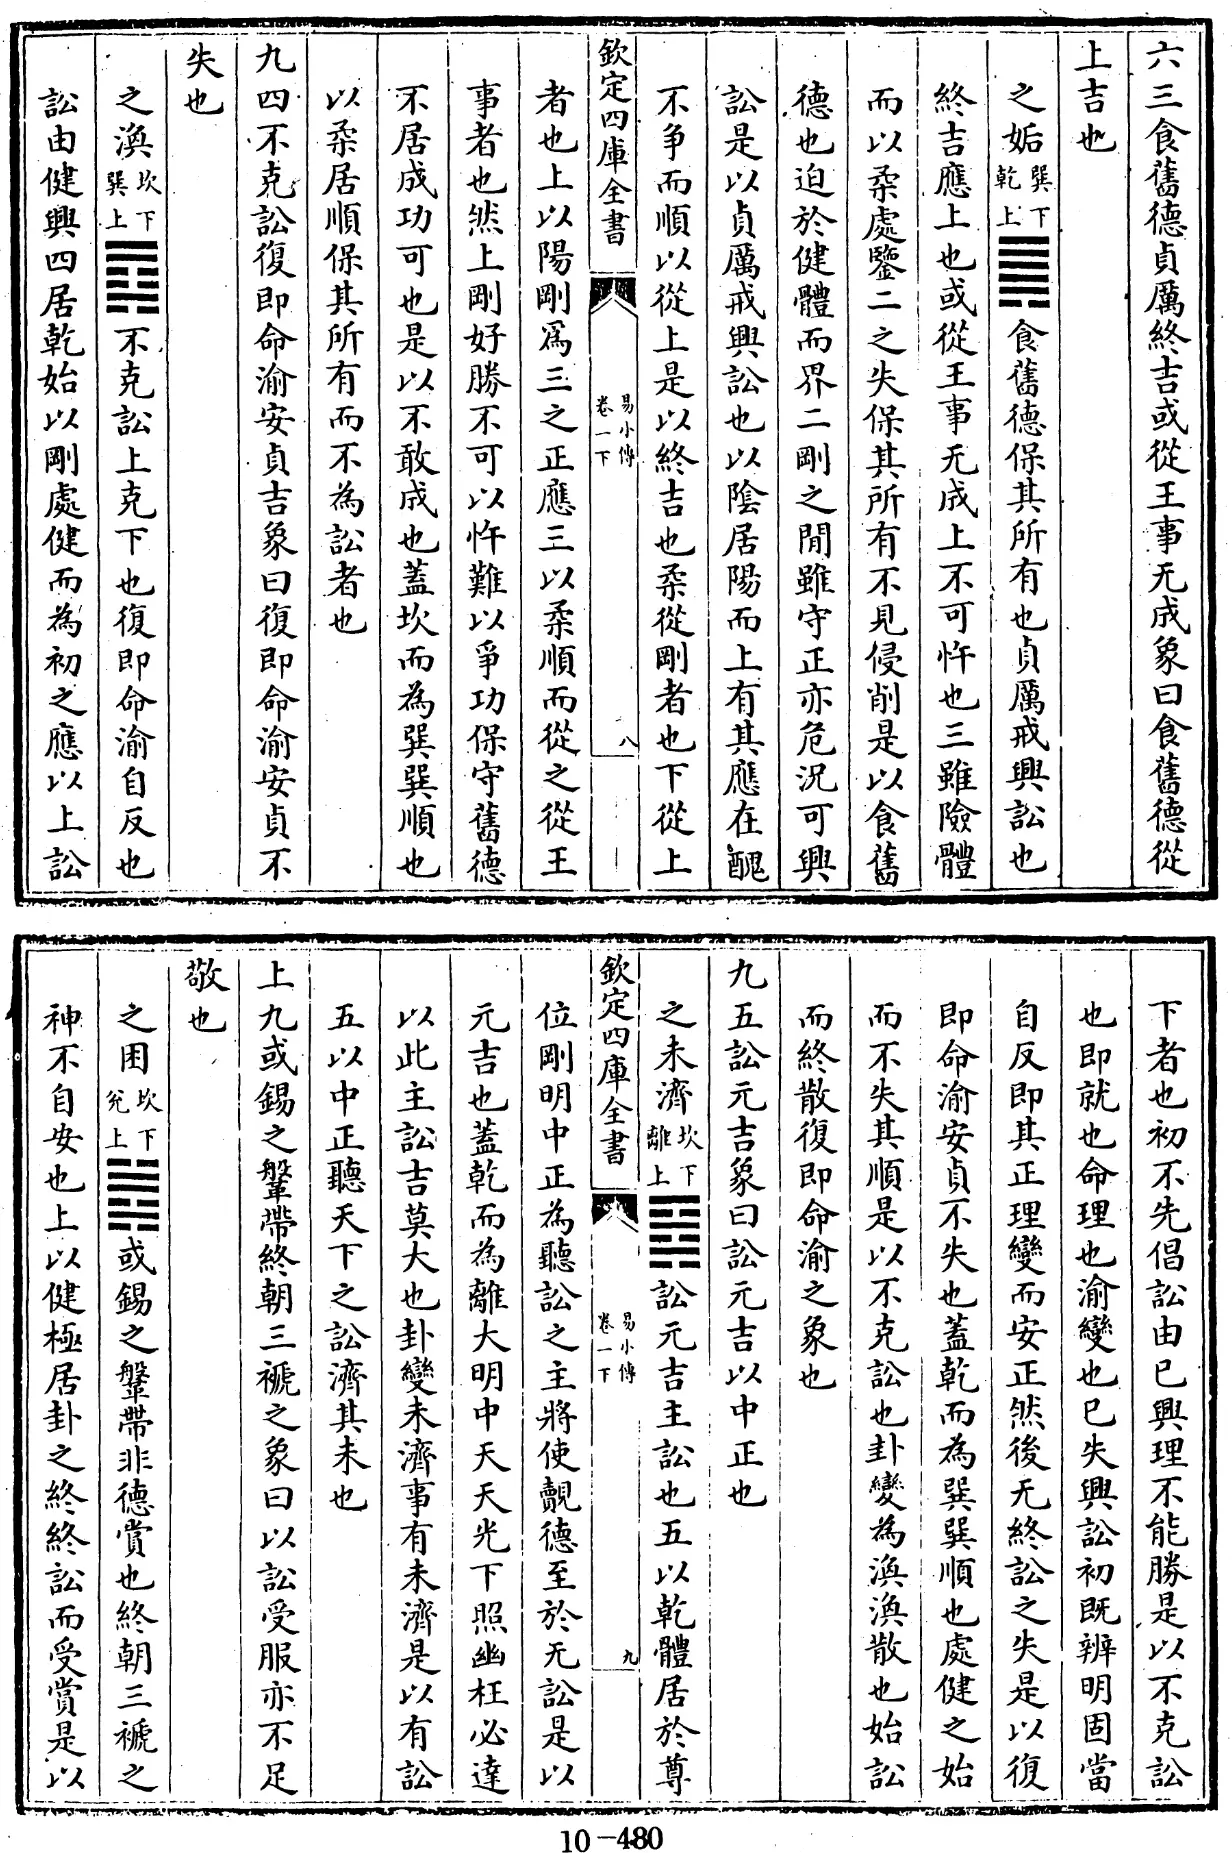 六三食舊德貞厲終吉或從王事无成象曰食舊德從
上吉也
之姤巽下乾上食舊德保其所有也貞厲戒興訟也
終吉應上也或從王事无成上不可忤也三雖險體
而以柔處鑒二之失保其所有不見侵削是以食舊
德也迫於健體而界二剛之閒雖守正亦危況可興
訟是以貞厲戒興訟也以陰居陽而上有其應在醜
不爭而順以從上是以終吉也柔從剛者也下從上
欽定四庫全書
易小傳
卷一下
八
者也上以陽剛爲三之正應三以柔順而從之從王
事者也然上剛好勝不可以忤難以爭功保守舊德
不居成功可也是以不敢成也蓋坎而為巽巽順也
以柔居順保其所有而不為訟者也
九四不克訟復即命渝安貞吉象曰復即命渝安貞不
失也
之渙坎下巽上不克訟上克下也復即命渝自反也
訟由健興四居乾始以剛處健而為初之應以上訟
下者也初不先倡訟由已興理不能勝是以不克訟
也即就也命理也渝變也已失興訟初既辨明固當
自反即其正理變而安正然後无終訟之失是以復
即命渝安貞不失也蓋乾而為巽巽順也處健之始
而不失其順是以不克訟也卦變為渙渙散也始訟
而終散復即命渝之象也
九五訟元吉象曰訟元吉以中正也
之未濟坎下離上訟元吉主訟也五以乾體居於尊
欽定四庫全書
易小傳
卷一下
九
位剛明中正為聽訟之主將使覿德至於无訟是以
元吉也蓋乾而為離大明中天天光下照幽枉必達
以此主訟吉莫大也卦變未濟事有未濟是以有訟
五以中正聽天下之訟濟其未也
上九或錫之鞶帶終朝三褫之象曰以訟受服亦不足
敬也
之困坎下兌上或錫之鞶帶非德賞也終朝三褫之
神不自安也上以健極居卦之終終訟而受賞是以
10-480